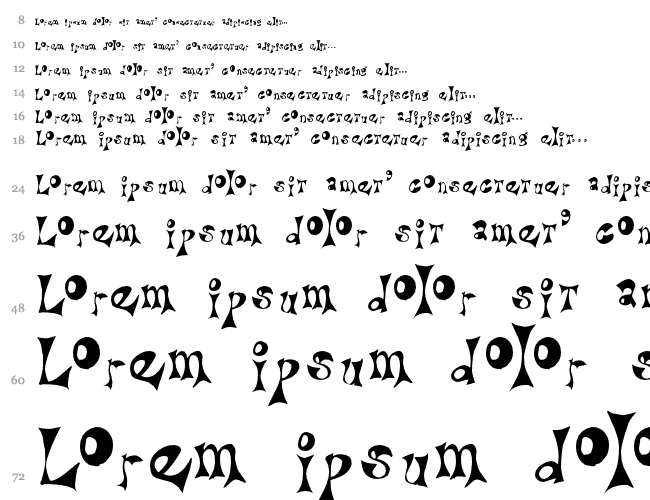 8 Lorem ipsum dolor sit amet, consectetuer adipiscing elit...
10 Lorem ipsum dolor sit amet, consectetuer adipiscing elit...
12 Lorem ipsum dolor sit amet, consectetuer adipiscing elit...
14 Lorem ipsum dolor sit amet, consectetuer adipiscing elit...
16 Lorem ipsum dolor sit amet, consectetuer adipiscing elit...
18 Lorem ipsum dolor sit amet, consectetuer adipiscing elit...
24 Lorem ipsum dolor sit amet, consectetuer adipis
36 Lorem ipsum dolor sit amet, con
48 Lorem ipsum dolor sit am
60 Lorem ipsum dolor s
72 Lorem ipsum dolo